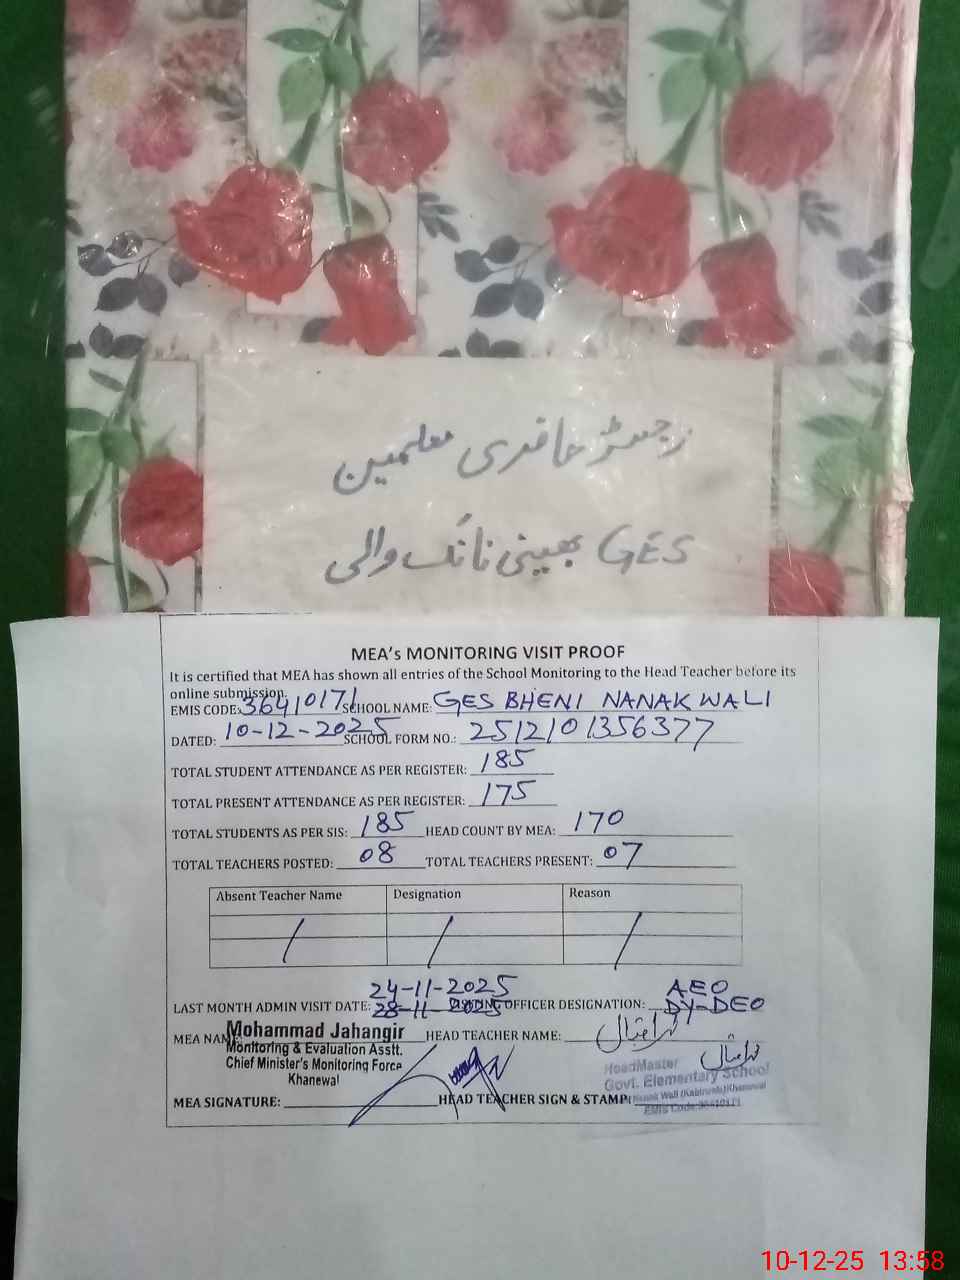 رجسٹر حاضری معلمین
GES بھینی نانک والی
MEA's MONITORING VISIT PROOF
It is certified that MEA has shown all entries of the School Monitoring to the Head Teacher before its
online submission.
EMIS CODE: 36410171 SCHOOL NAME: GES BHENI NANAK WALI
DATED: 10-12-2025 SCHOOL FORM NO.: 2512101356377
TOTAL STUDENT ATTENDANCE AS PER REGISTER: 185
TOTAL PRESENT ATTENDANCE AS PER REGISTER: 175
TOTAL STUDENTS AS PER SIS: 185 HEAD COUNT BY MEA: 170
TOTAL TEACHERS POSTED: 08 TOTAL TEACHERS PRESENT: 07
Absent Teacher Name Designation Reason
24-11-2025 AEO
LAST MONTH ADMIN VISIT DATE: 28-11-2025 VISITING OFFICER DESIGNATION: DY-DEO
MEA NAME: Mohammad Jahangir HEAD TEACHER NAME:
Monitoring & Evaluation Asstt.
Chief Minister's Monitoring Force
Khanewal
HeadMaster
Govt. Elementary School
Nanak Wali (Kabirwala) Khanewal
EMIS Code:36410171
MEA SIGNATURE: HEAD TEACHER SIGN & STAMP:
10-12-25 13:58